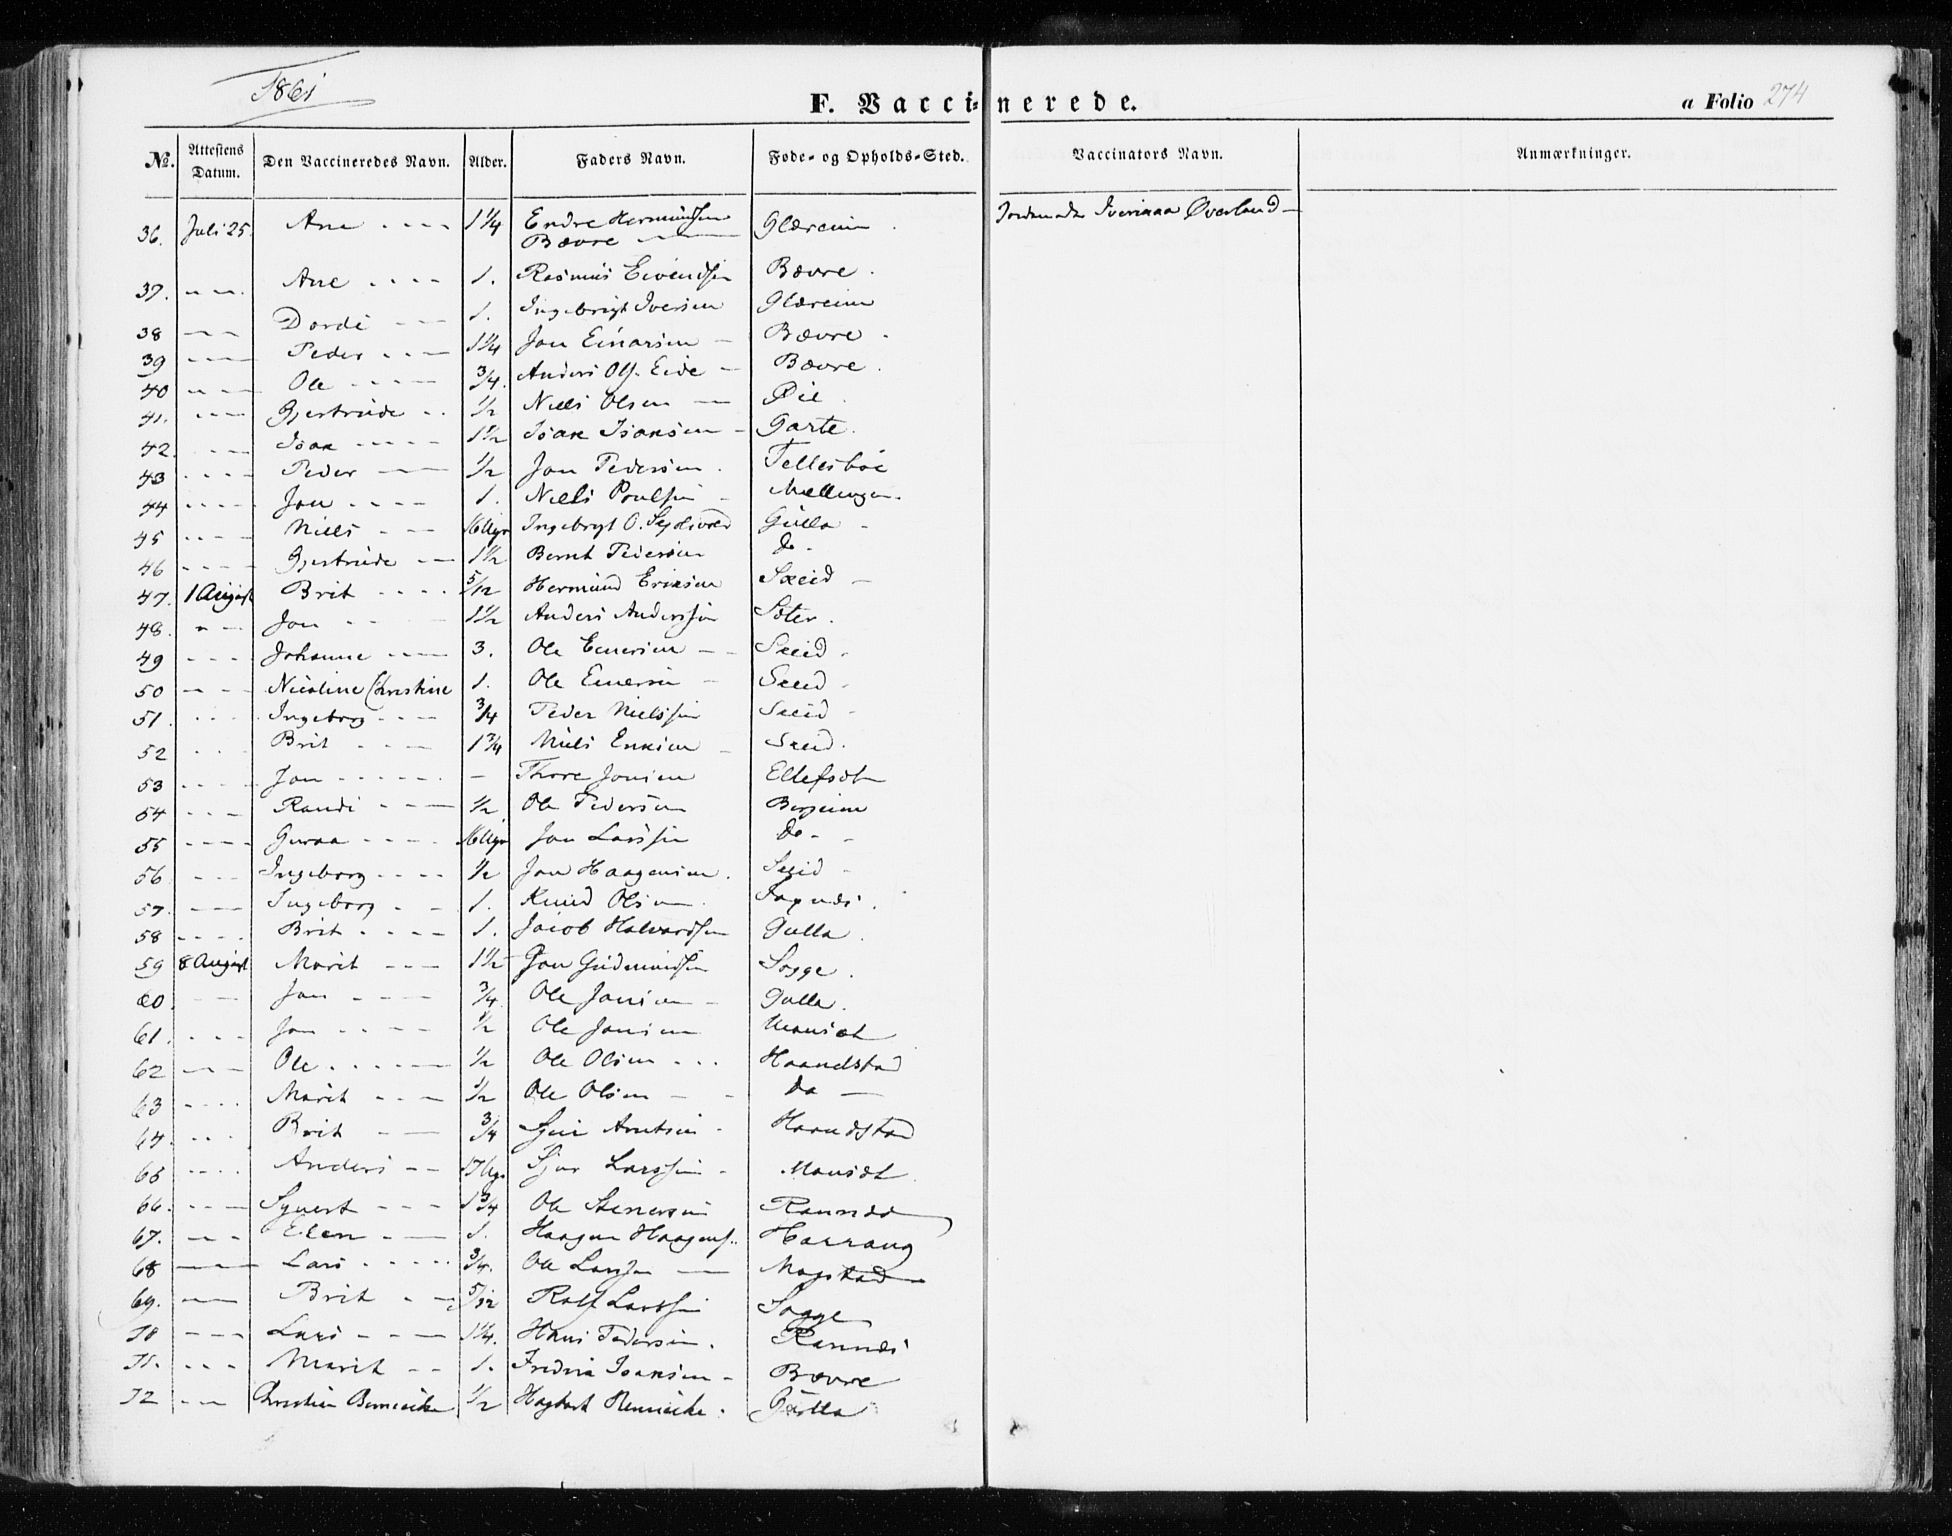 1861
F. Vaccinerede.
a Folio 274
No. Attestens Datum. Den Vaccineredes Navn. Alder. Faders Navn. Føde- og Opholds-Sted. Vaccinators Navn. Anmærkninger.
36. Juli 25. Ane 1 1/4 Endre Hermundsen Bævre Glæreim Øverland
37. Ane 1. Rasmus Eivendsen Bævre.
38 Dordi 1. Ingebrigt Iversen Glæreim
39 Peder 1 1/4 Jon Einarsen Bævre
40 Ole 3/4. Anders Ols. Eide Bævre.
41. Gjertrude 1/2 Niels Olsen Øie.
42. Isak 1 1/2 Isak Isaksen Garte.
43 Peder 1/2 Jon Pedersen. Tellesbøe
44 Jon 1. Niels Poulsen Mellingen.
45 Niels 16 Uger Ingebrigt O. Gulla
46 Gjertrude 1 1/2 Bernt Pedersen do.
47. 1 August Brit 5/12 Hermund Eriksen Skeid
48. Jon 1 1/2 Anders Anderssen
49 Johanne 3. Ole Einersen Skeid
50 Nicoline Christine 1. Ole Einersen Skeid
51. Ingeborg 3/4 Peder Nielssen Skeid
52 Brit 1 3/4 Niels Skeid.
53 Jon - Thore Jonsen
54 Randi 1/2 Ole Pedersen
55 Guraa 16 Uger Jon Larssen do.
56 Ingeborg 1/2 Jon Haagensen. Skeid
57. Ingeborg 1. Knud Olsen.
58 Brit 1. Jacob Halvardsen Gulla
59 8 August Marit 1 1/2 Jon Gudmundsen Sogge.
60. Jon 3/4 Ole Jonsen Gulla.
61. Jon 1/2 Ole Jonsen
62 Ole 1/2 Ole Olsen Haandstad
63 Marit 1/2 Ole Olsen do
64. Brit 3/4 Arntsen Haandstad
65 Anders 17 Uger Sjur Larssen
66. Synert 1 3/4 Ole Stenersen
67. Elen 1. Haagen Haagens. Harrang
68 Lars 3/4. Ole Larssen Mogstad
69. Brit 5/12 Rolf Larssen Sogge
70 Lars 1 1/4. Hans Pedersen. Rannes
71. Marit 1. Fredrik Isaksen Bævre
72 Christian 1/2 Hagbart Gulla